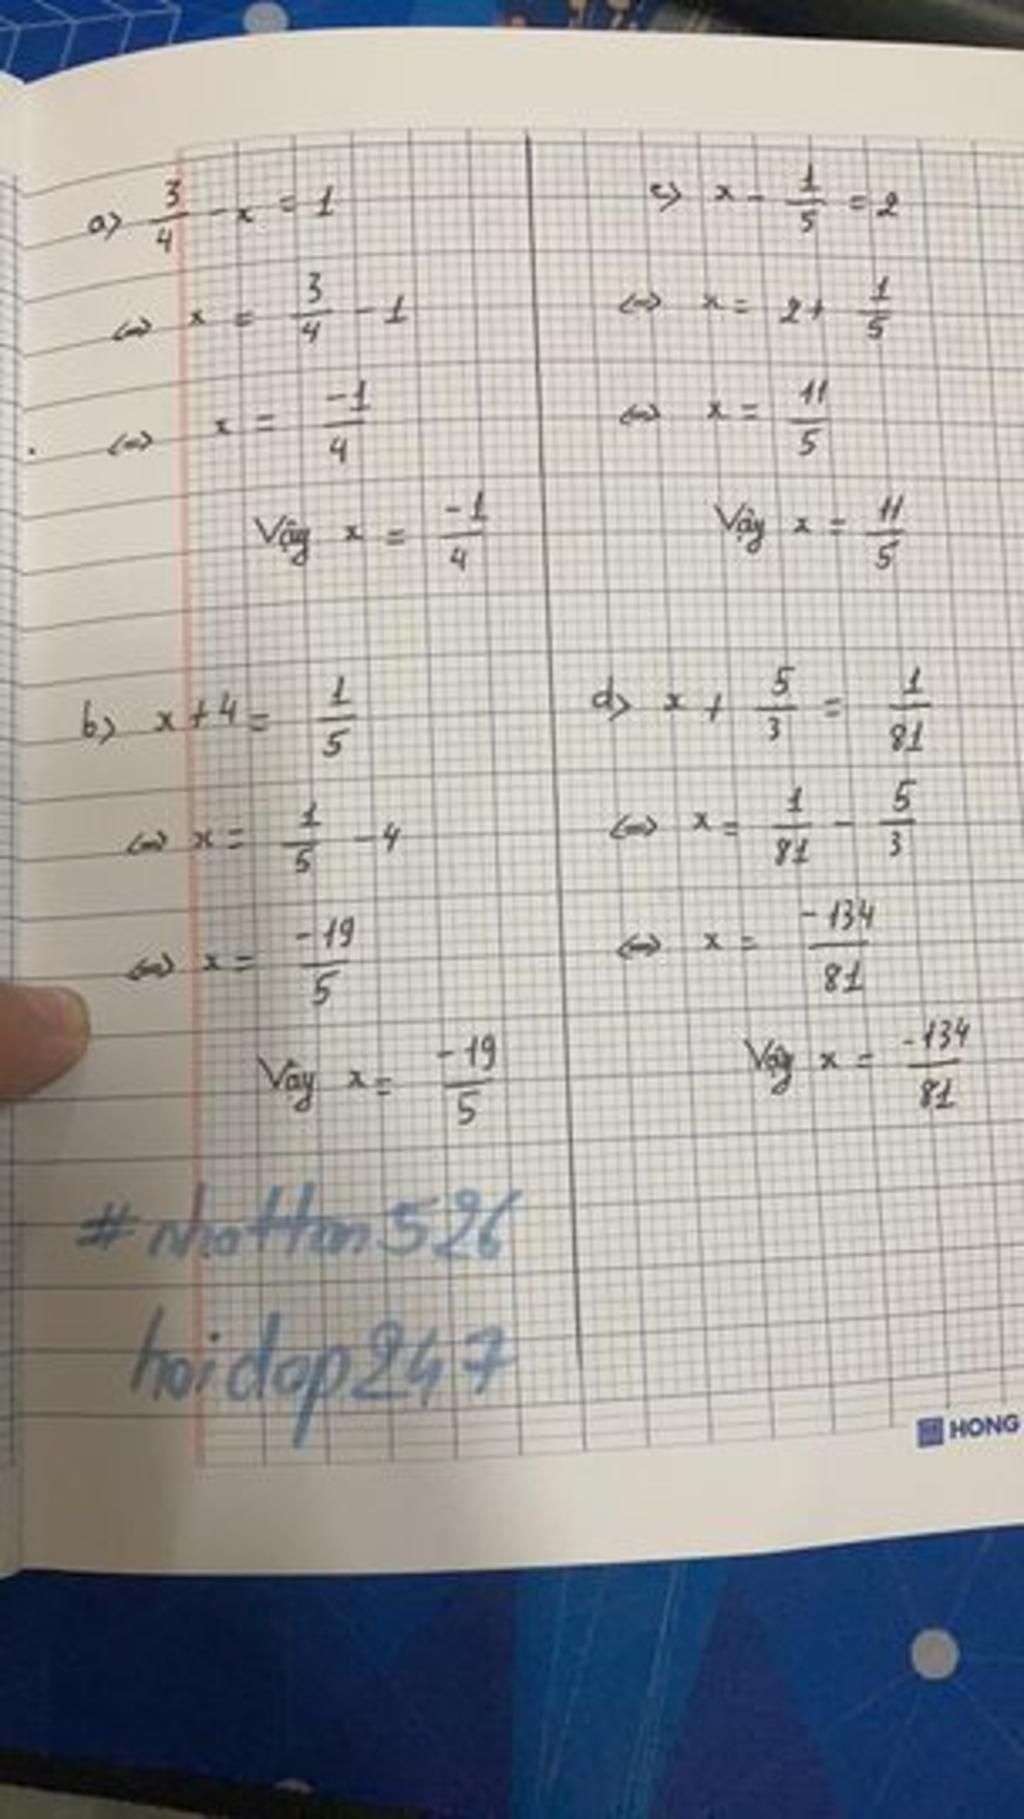 a) 3/4 - x = 1
⇔ x = 3/4 - 1
⇔ x = -1/4
Vậy x = -1/4
b) x + 4 = 1/5
⇔ x = 1/5 - 4
⇔ x = -19/5
Vậy x = -19/5
c) x - 1/5 = 2
⇔ x = 2 + 1/5
⇔ x = 11/5
Vậy x = 11/5
d) x + 5/3 = 1/81
⇔ x = 1/81 - 5/3
⇔ x = -134/81
Vậy x = -134/81
hoidap247
HONG